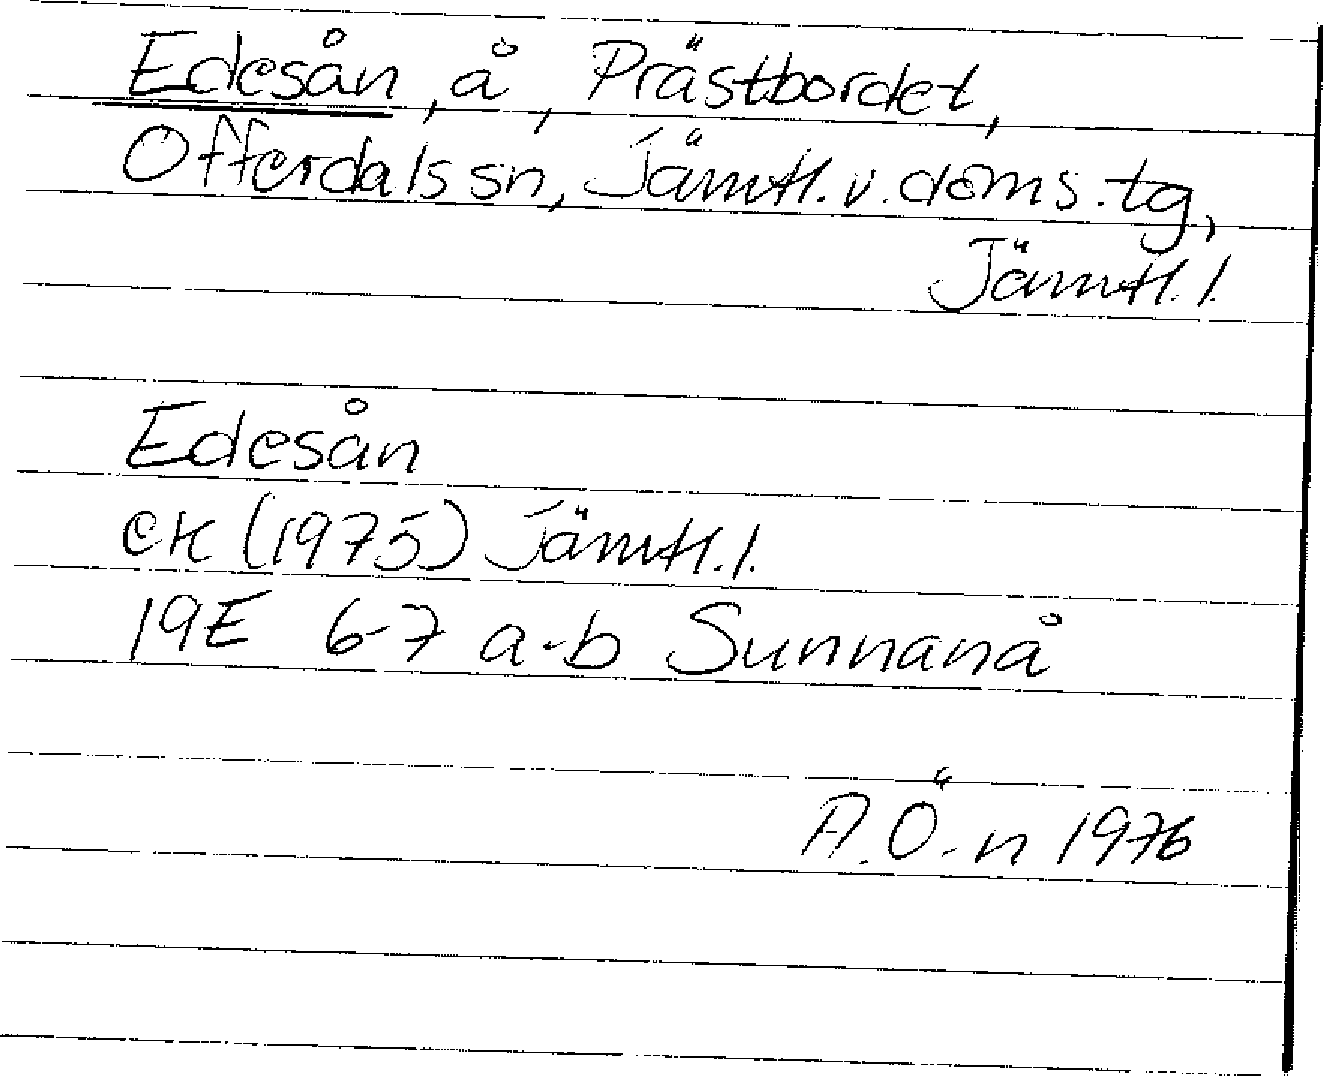 Edesån, å, Prästbordet,
Offerdals sn, Jämtl. v. doms. tg,
Jämtl. l.
Edesån
ek (1975) Jämtl. l.
19E 6-7 a-b Sunnanå
A. Ö-n 1976